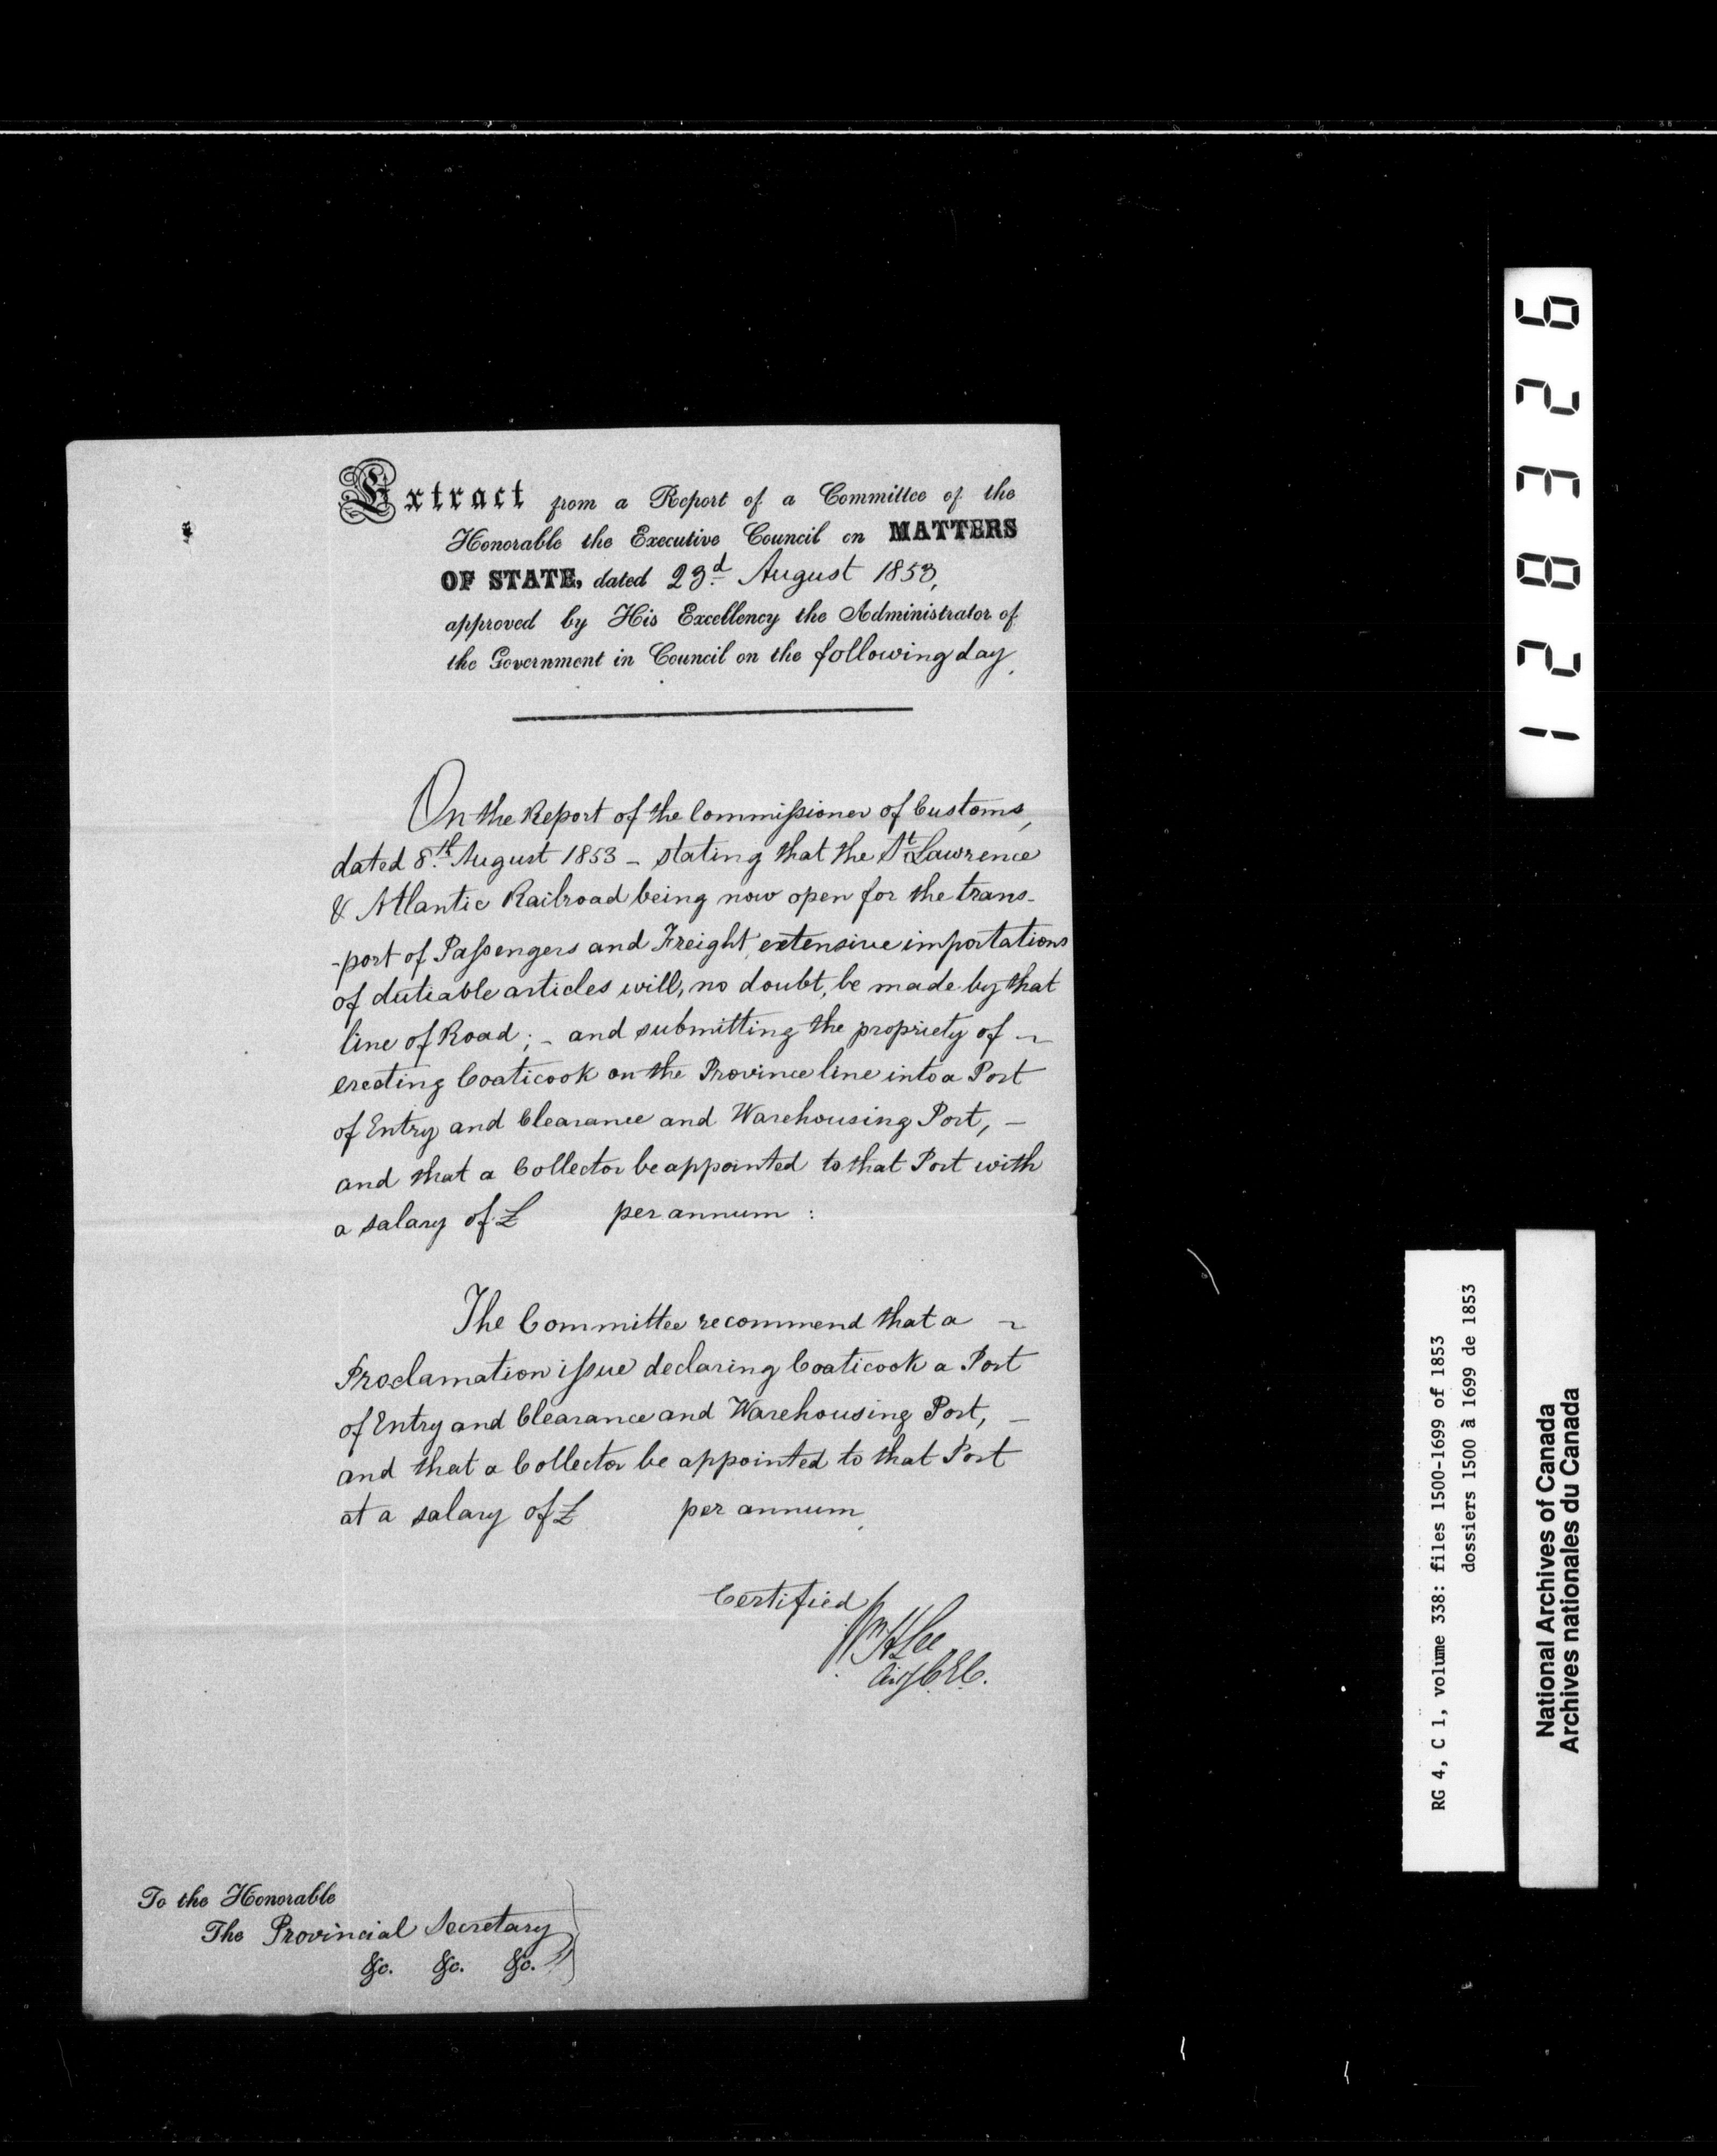 Extract from a Report of a Committee of the
Honorable the Executive Council on MATTERS
OF STATE, dated 23d. August 1853,
approved by His Excellency the Administrator of
the Government in Council on the following day.
On the Report of the Commissioner of Customs,
dated 8th. August 1853 – stating that the St Lawrence
& Atlantic Railroad being now open for the trans-
-port of Passengers and Freight, extensive importations
of dutiable articles will, no doubt, be made by that
line of Road; – and submitting the propriety of ~
erecting Coaticook on the Province line into a Port
of Entry and Clearance and Warehousing Port, –
and that a Collector be appointed to that Port with
a salary of £ per annum :
The Committee recommend that a ~
Proclamation issue declaring Coaticook a Port
of Entry and Clearance and Warehousing Port, –
and that a Collector be appointed to that Port
at a salary of £ per annum.
Certified
Wm H Lee
Actg C.E.C.
To the Honorable
The Provincial Secretary
&c. &c. &c.
128326
RG 4, C 1, volume 338: files 1500-1699 of 1853
dossiers 1500 à 1699 de 1853
National Archives of Canada
Archives nationales du Canada